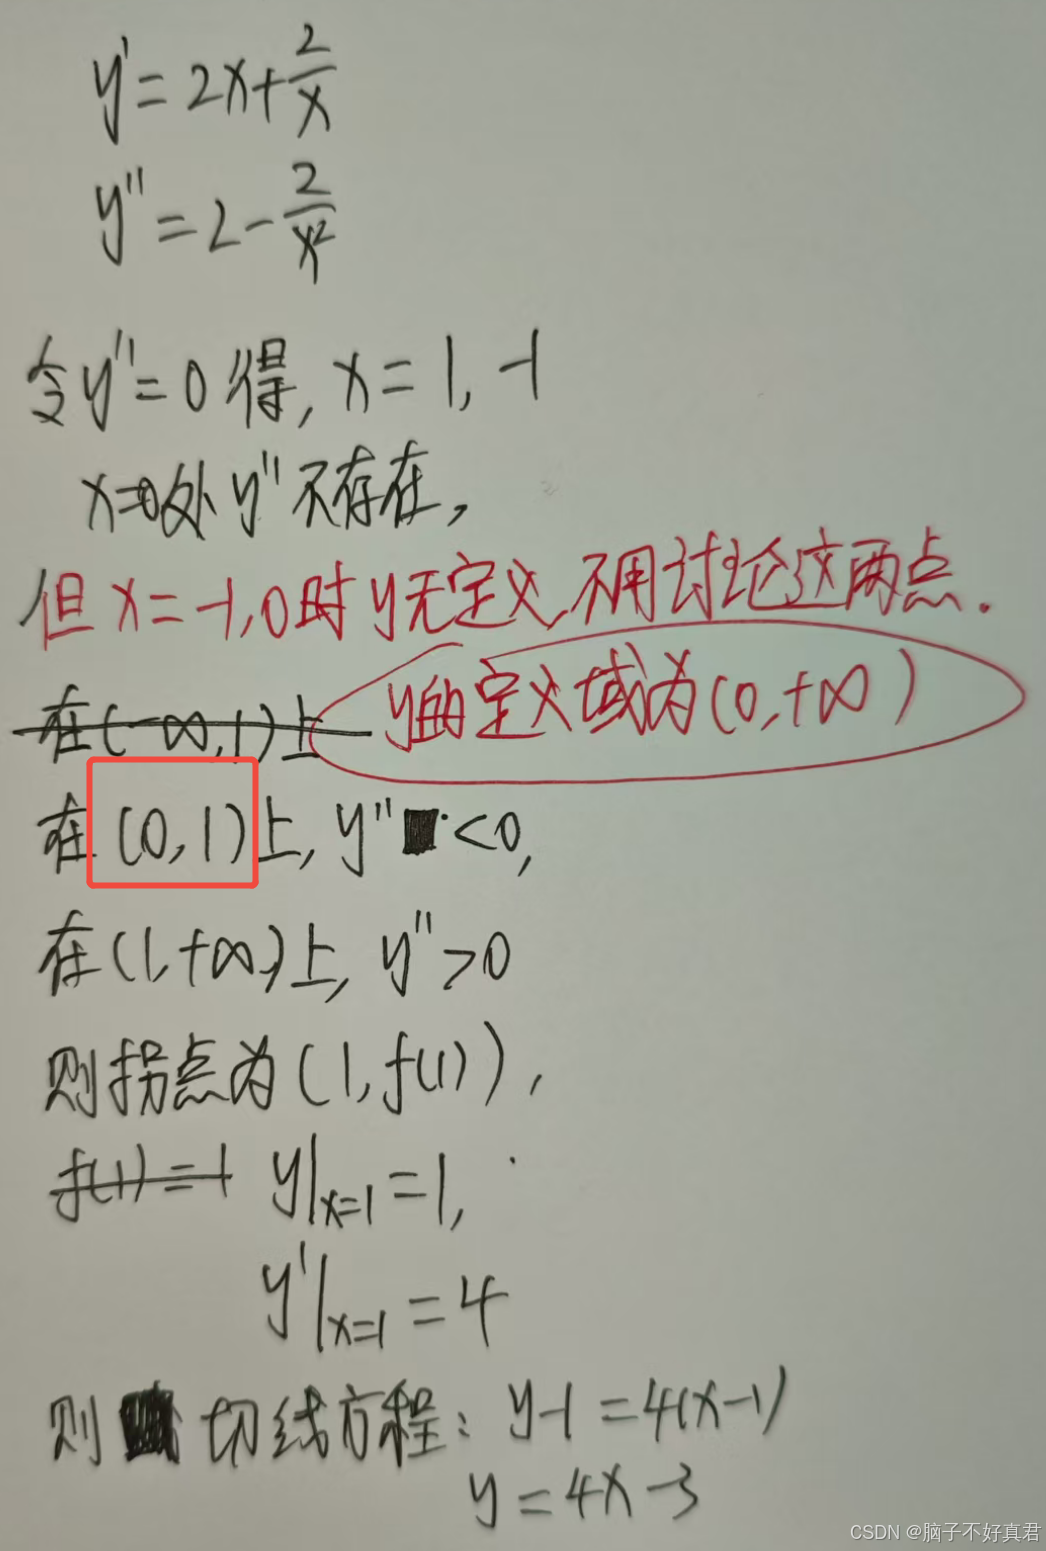 y' = 2x + 2/x
y'' = 2 - 2/x²
令y''=0得, x=1, -1
x=0处y''不存在,
但x=-1,0时y无定义,不用讨论这两点.
在(-∞,1)上 y的定义域为(0,+∞)
在(0,1)上, y''<0,
在(1,+∞)上, y''>0
则拐点为(1,f(1)),
f(1)=1 y|x=1 =1,
y'|x=1 =4
则切线方程: y-1=4(x-1)
y=4x-3
CSDN @脑子不好真君